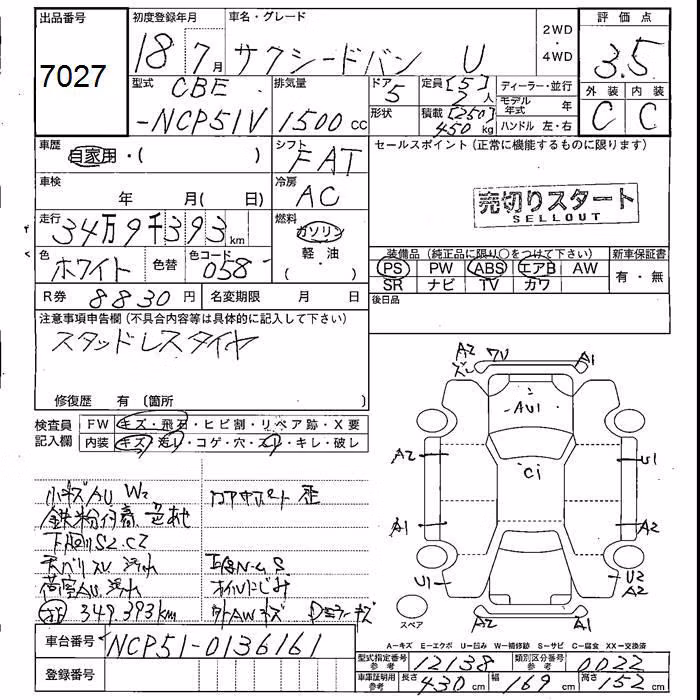 出品番号 初度登録年月 車名・グレード 2WD・4WD 評価点
7027 18 7月 サクシードバン U 3.5
型式 CBE-NCP51V 排気量 1500cc
ドア 5 定員 [5] 2人 ディーラー・並行
形状 積載 [250] 450kg モデル年式 年
ハンドル 左・右
外装 内装
C C
車歴 自家用・( ) シフト FAT
車検 年 月( 日) 冷房 AC
走行 34万9千393km 燃料 ガソリン 軽・油 ( )
色 ホワイト 色替 色コード 058
R券 8830円 名変期限 月 日
セールスポイント(正常に機能するものに限ります)
売切りスタート
SELLOUT
装備品(純正品に限り○をつけて下さい) 新車保証書
PS PW ABS エアB AW 有・無
SR ナビ TV カワ
後日品
注意事項申告欄(不具合内容等は具体的に記入して下さい)
スタッドレスタイヤ
修復歴 有 〔箇所
検査員記入欄 FW キズ・飛石・ヒビ割・リペア跡・X要
内装 キズ・汚レ・コゲ・穴・スレ・キレ・破レ
小キズAU W2
鉄粉付着
下廻りS2.C2
天ベリスレ 汚れ
荷室AU.汚れ オイルにじみ
349.393km 外AWキズ Dミラーキズ
A2 ズレ 7U A1
AU1
Ci
A2 U1
A1 A2
U1 U2 A2
A2 A1
スペア
A-キズ E-エクボ U-凹み W-補修跡 S-サビ C-腐食 XX-交換済
車台番号 NCP51-0136161
登録番号
型式指定番号 参考 12138 類別区分番号 参考 0022
車庫証明用 参考 長さ 430cm 幅 169cm 高さ 152cm